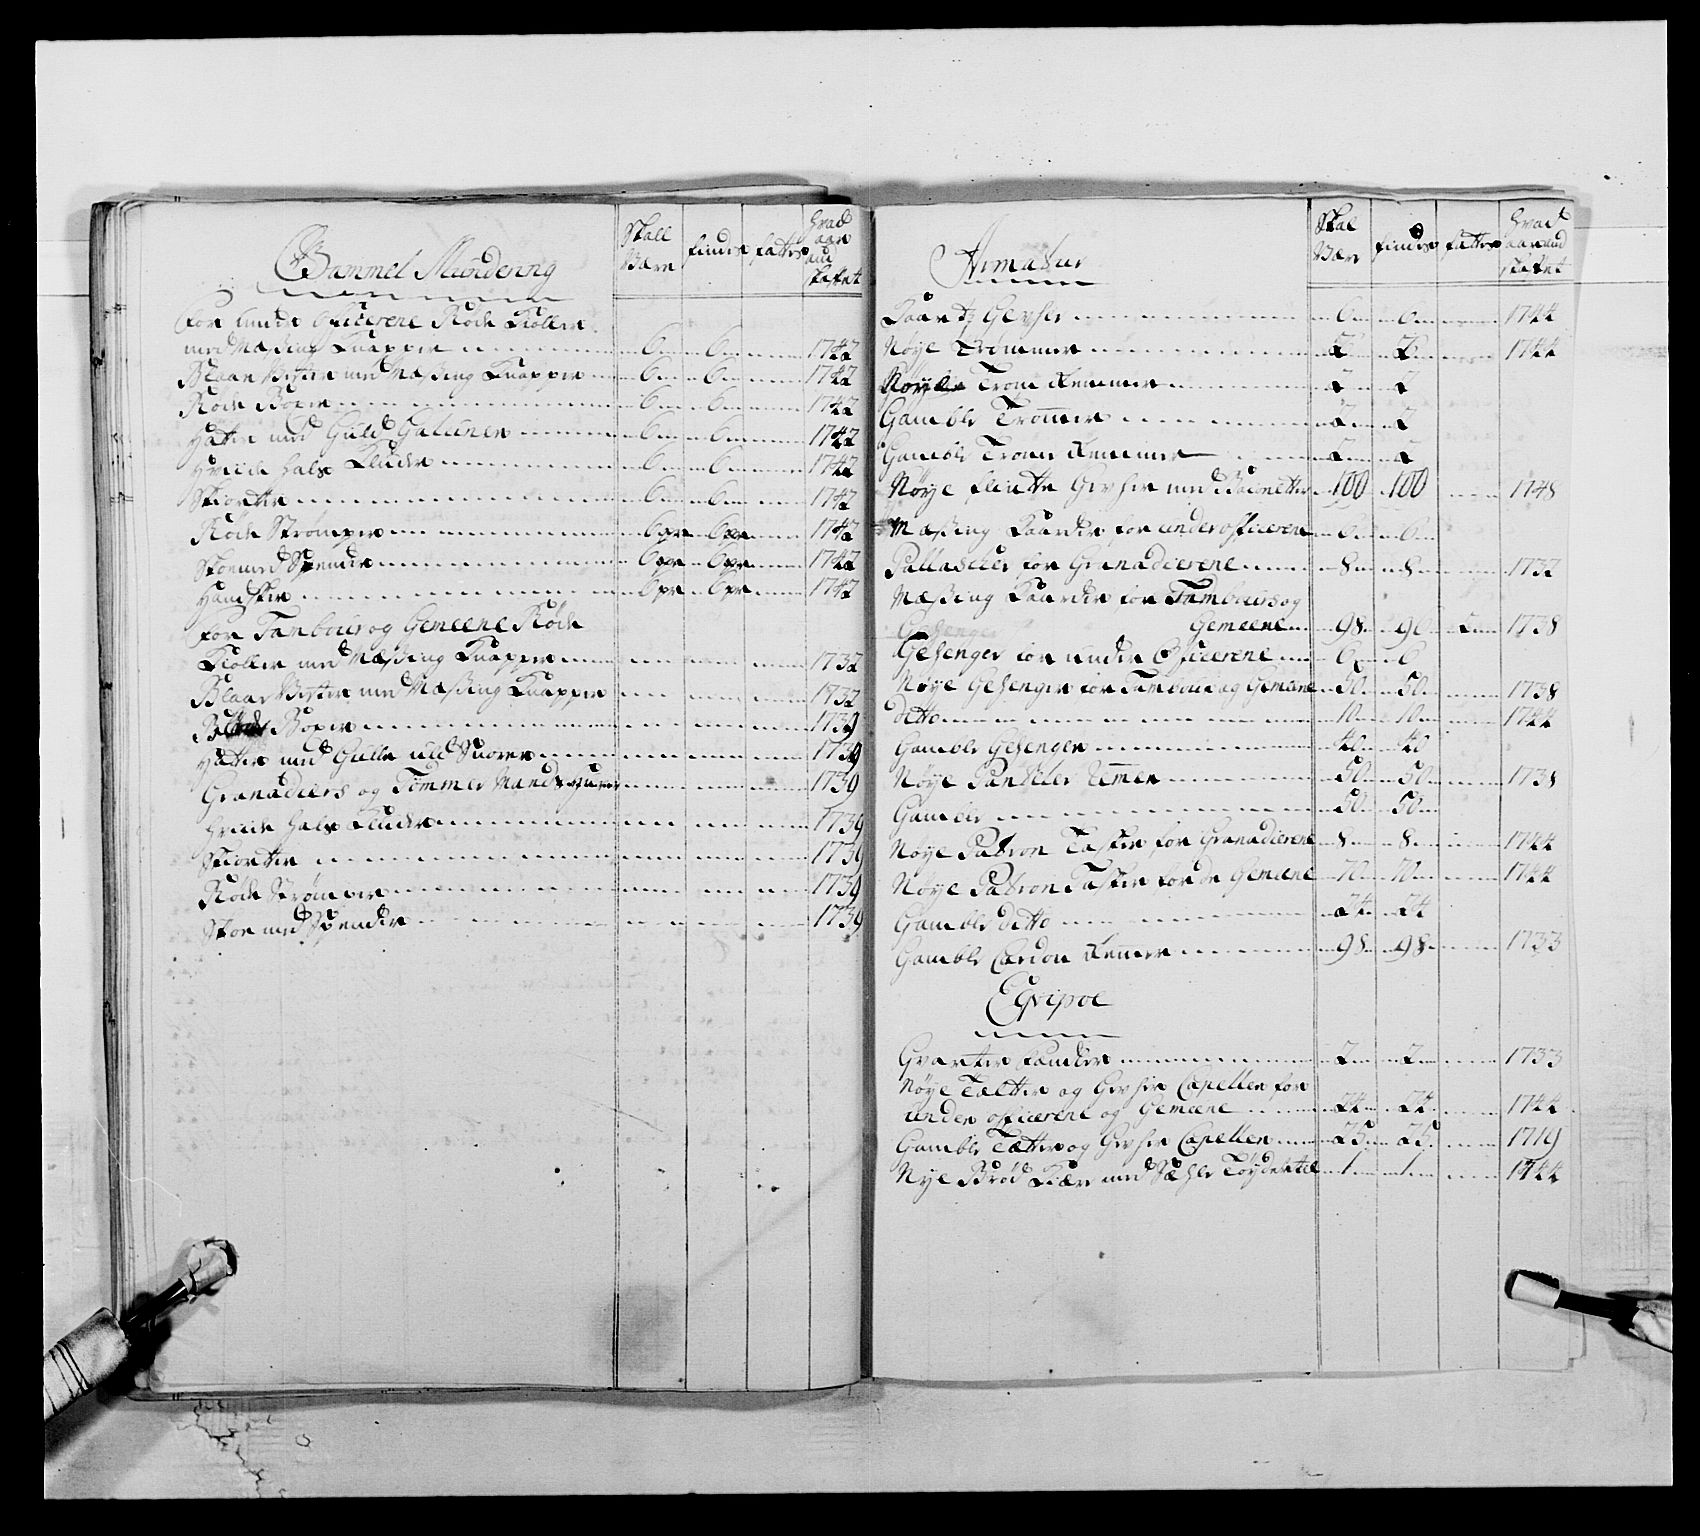 Gammel Mundering
Skall Være
findes
fattes
Hvad aar ud skattet
for under officerene Røde Kioller
med Messing Knapper 6 6 1742
Blaae Vester med Messing Knapper 6 6 1742
Røde Boxer 6 6 1742
Hatter med Guld Galuner 6 6 1742
Hvide Hals Kluder 6 6 1742
Skiortter 6 6 1742
Røde Strømper 6 pr 6 pr 1742
Skoe med Spender 6 pr 6 pr 1742
Handsker 6 pr 6 pr 1742
for Tambour og Gemeene Røde
Kioller med Messing Knapper 1732
Blaae Vester med Messing Knapper 1732
Boxer 1739
Hatter med Gulle uld Snorer 1739
Granadiers og Tømmer Mands Huer 1739
Hvide Hals Kluder 1739
Skiortter 1739
Røde Strømper 1739
Skoe med Spender 1739
Armatur
Skal Være
findes
fattes
Hvad aar ud skattet
Kaart Gevher 6 6 1744
Nøye Trommer 2 2 1744
Nøye Trom Remmer 2 2
Gamble Trommer 2 2
Gamble Trom Remmer 2 2
Nøye flintte Gevher med Baionetter 100 100 1748
Messing Kaarder for underofficerene 6 6
Pallasker for Granadierene 8 8 1732
Messing Kaarder for Tambours og
Gemeene 98 96 2 1738
Gehenger for under Officerene 6 6
Nøye Gehenger for Tambour og Gemeene 50 50 1738
ditto 10 10 1744
Gamble Gehenger 40 40
Nøye Panteler Remmer 50 50 1738
Gamble 50 50
Nøye Patron Tasker for Granadierene 8 8 1744
Nøye Patron Tasker for de Gemeene 70 70 1744
Gamble ditto 24 24
Gamble Cardon Remmer 98 98 1733
Eqvipae
Qvarteer fanner 2 2 1733
Nøye Tæltter og Gevher Capeller for
under officerene og Gemeene 24 24 1744
Gamble Tæltter og Gevher Capeller 25 25 1719
Nye Brød Kiære med Sehler Tøy 1 1 1744